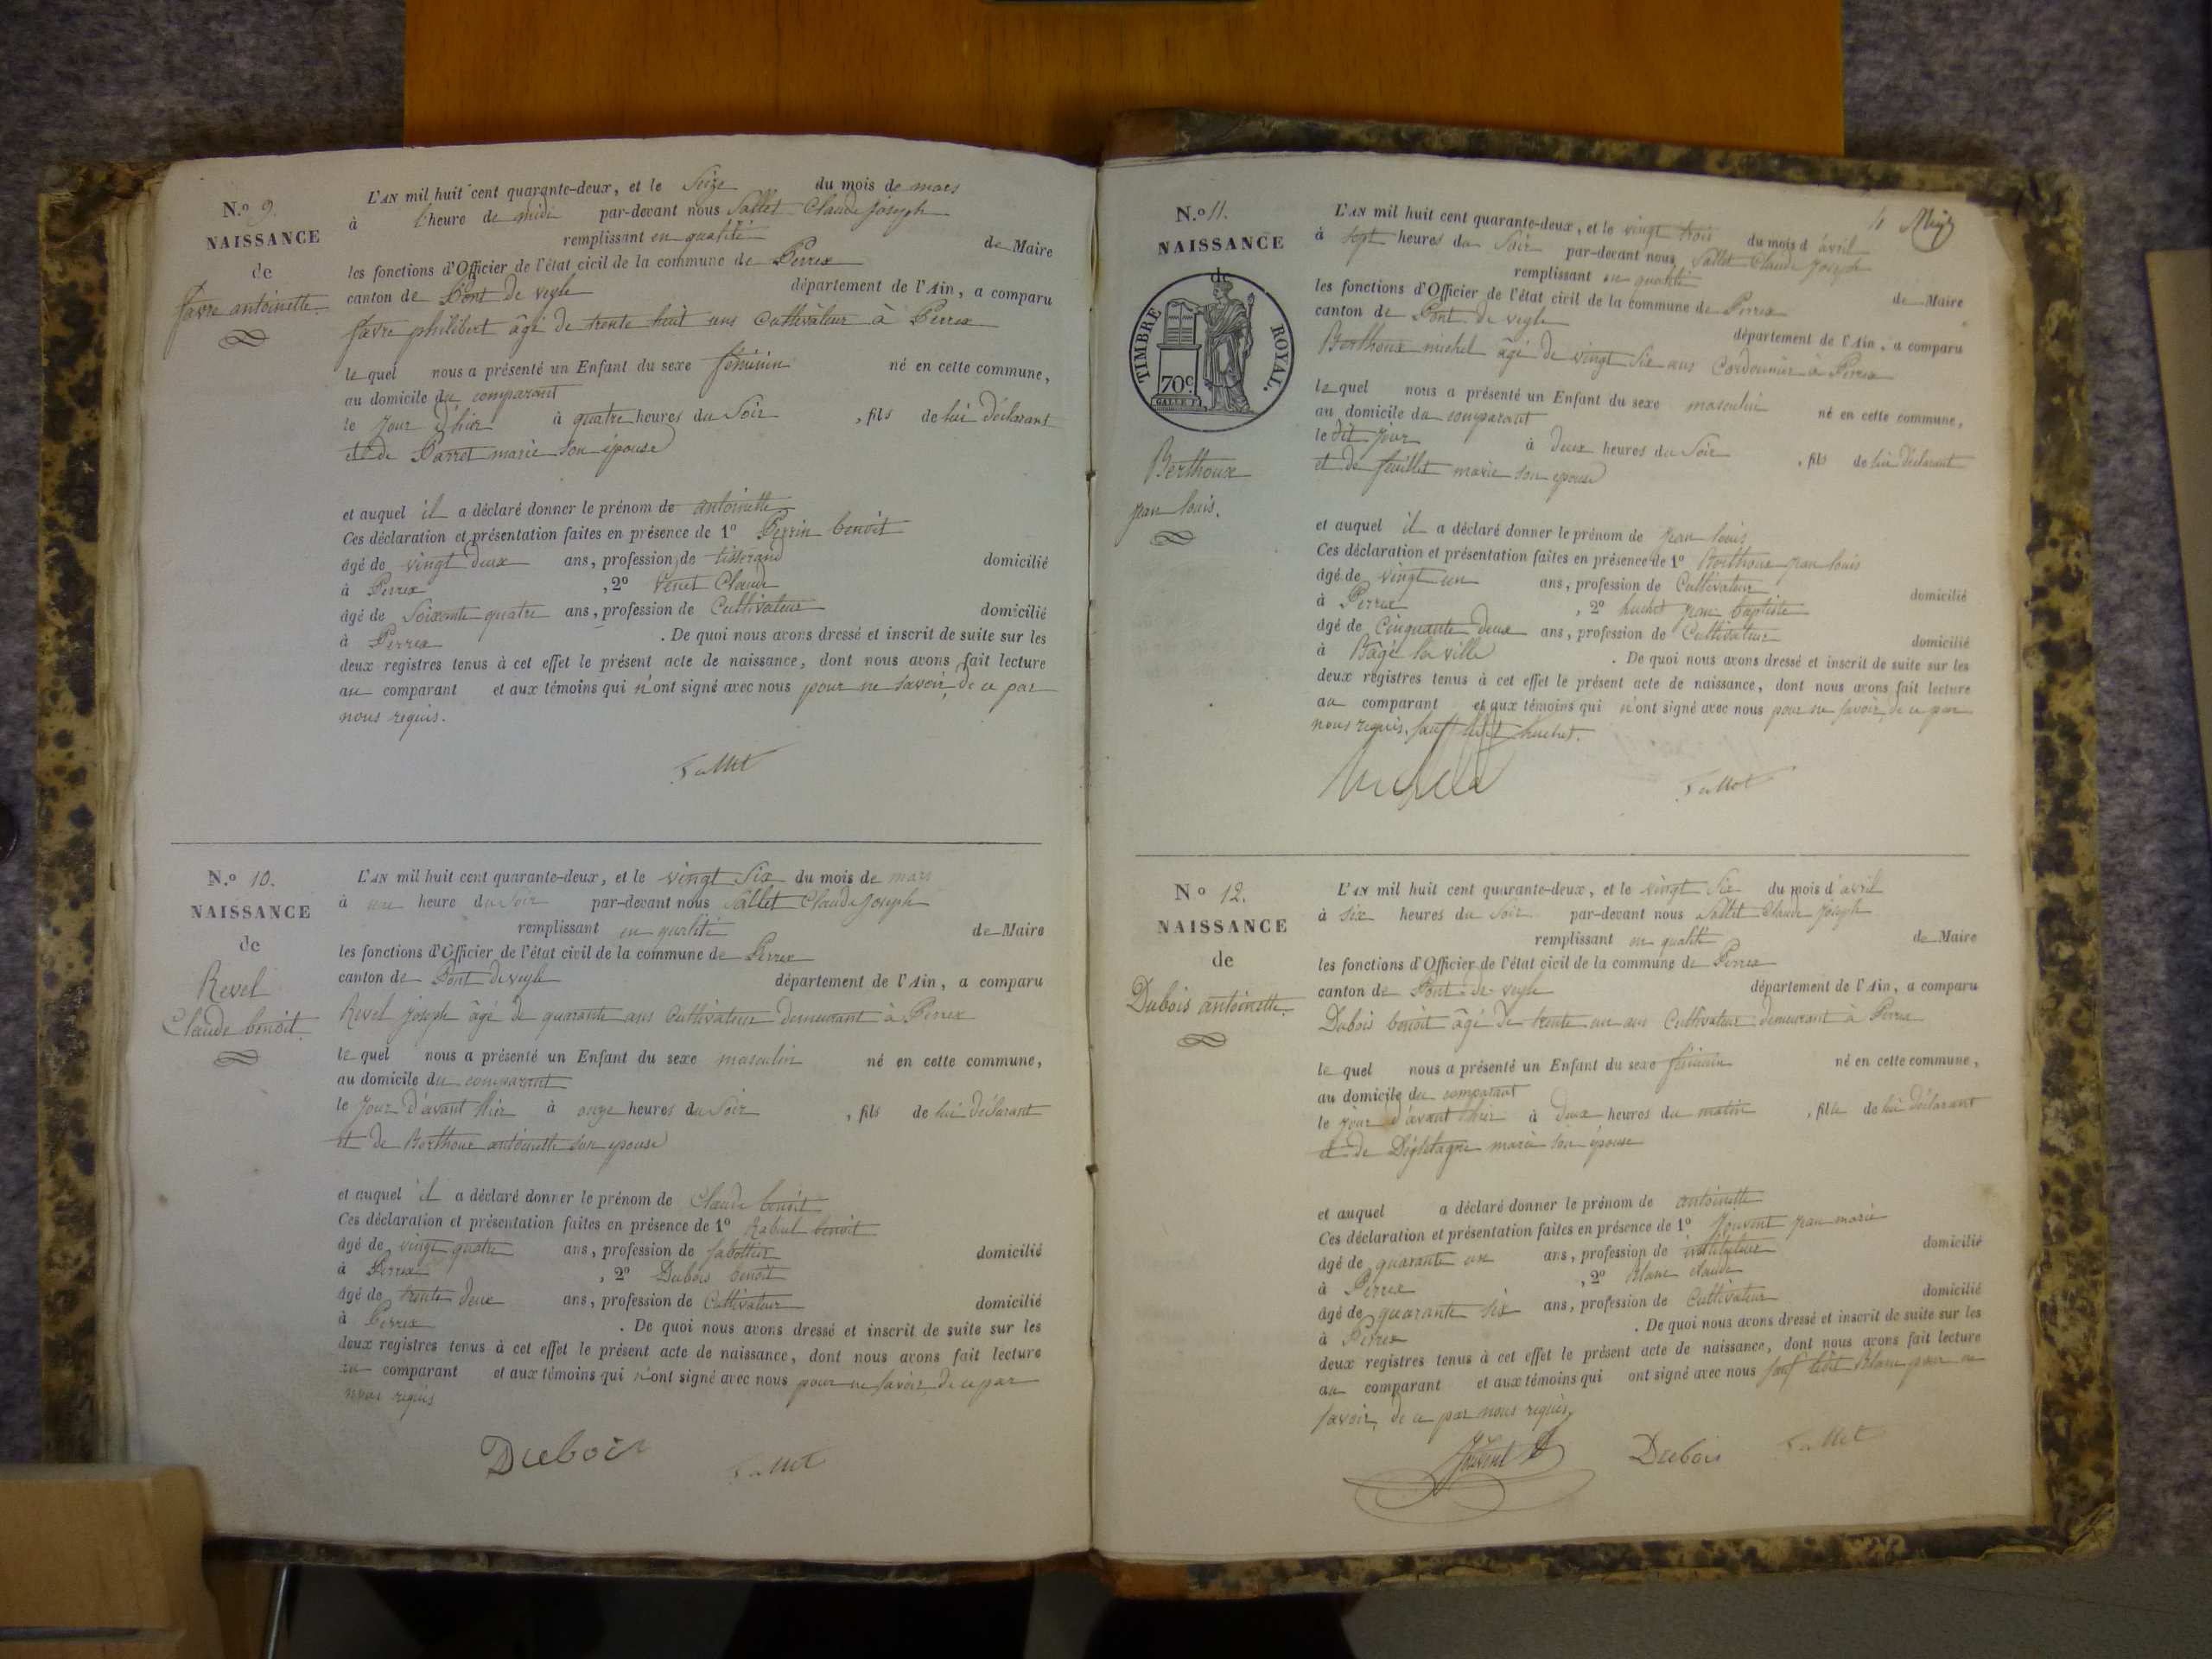 N.º 9.
NAISSANCE
de
favre antoinette.
L'AN mil huit cent quarante-deux, et le Seize du mois de mars
à l'heure de midi par-devant nous Sallet Claude Joseph
remplissant en qualité de Maire
les fonctions d'Officier de l'état civil de la commune de Perrex
canton de Pont de veyle département de l'Ain, a comparu
favre philibert âgé de trente huit ans Cultivateur à Perrex
le quel nous a présenté un Enfant du sexe féminin né en cette commune,
au domicile du comparant
le jour d'hier à quatre heures du Soir , fils de lui déclarant
et de Parret marie son épouse
et auquel il a déclaré donner le prénom de antoinette
Ces déclaration et présentation faites en présence de 1º Perrin benoit
âgé de vingt deux ans, profession de tisserand domicilié
à Perrex , 2º Venet Claude
âgé de Soixante quatre ans, profession de Cultivateur domicilié
à Perrex . De quoi nous avons dressé et inscrit de suite sur les
deux registres tenus à cet effet le présent acte de naissance, dont nous avons fait lecture
au comparant et aux témoins qui n'ont signé avec nous pour ne savoir, de ce par
nous requis.
Sallet
N.º 10.
NAISSANCE
de
Revel
Claude benoit.
L'AN mil huit cent quarante-deux, et le vingt Six du mois de mars
à une heure du Soir par-devant nous Sallet Claude Joseph
remplissant en qualité de Maire
les fonctions d'Officier de l'état civil de la commune de Perrex
canton de Pont de veyle département de l'Ain, a comparu
Revel joseph âgé de quarante ans Cultivateur demeurant à Perrex
le quel nous a présenté un Enfant du sexe masculin né en cette commune,
au domicile du comparant
le jour d'avant hier à onze heures du Soir , fils de lui déclarant
et de Berthoux antoinette son épouse
et auquel il a déclaré donner le prénom de Claude benoit
Ces déclaration et présentation faites en présence de 1º benoit
âgé de vingt quatre ans, profession de sabottier domicilié
à Perrex , 2º Dubois benoit
âgé de trente deux ans, profession de Cultivateur domicilié
à Perrex . De quoi nous avons dressé et inscrit de suite sur les
deux registres tenus à cet effet le présent acte de naissance, dont nous avons fait lecture
au comparant et aux témoins qui n'ont signé avec nous pour ne savoir de ce par
nous requis
Dubois Sallet
4
N.º 11.
NAISSANCE
de
TIMBRE ROYAL.
70c.
GALLE F.
Berthoux
jean louis.
L'AN mil huit cent quarante-deux, et le vingt trois du mois d'avril
à sept heures du Soir par-devant nous Sallet Claude Joseph
remplissant en qualité de Maire
les fonctions d'Officier de l'état civil de la commune de Perrex
canton de Pont de veyle département de l'Ain, a comparu
Berthoux michel âgé de vingt Six ans Cordonnier à Perrex
le quel nous a présenté un Enfant du sexe masculin né en cette commune,
au domicile du comparant
le dit jour à deux heures du Soir , fils de lui déclarant
et de feuillet marie son épouse
et auquel il a déclaré donner le prénom de jean louis
Ces déclaration et présentation faites en présence de 1º Berthoux jean louis
âgé de vingt un ans, profession de Cultivateur domicilié
à Perrex , 2º huchet jean baptiste
âgé de Cinquante deux ans, profession de Cultivateur domicilié
à Bâgé la ville . De quoi nous avons dressé et inscrit de suite sur les
deux registres tenus à cet effet le présent acte de naissance, dont nous avons fait lecture
au comparant et aux témoins qui n'ont signé avec nous pour ne savoir, de ce par
nous requis, sauf ledit huchet.
Sallet
Nº 12.
NAISSANCE
de
Dubois antoinette.
L'AN mil huit cent quarante-deux, et le vingt Six du mois d'avril
à six heures du Soir par-devant nous Sallet Claude Joseph
remplissant en qualité de Maire
les fonctions d'Officier de l'état civil de la commune de Perrex
canton de Pont-de-veyle département de l'Ain, a comparu
Dubois benoit âgé de trente un ans Cultivateur demeurant à Perrex
le quel nous a présenté un Enfant du sexe féminin né en cette commune,
au domicile du comparant
le jour d'avant hier à deux heures du matin , fille de lui déclarant
et de Dégletagne marie son épouse
et auquel a déclaré donner le prénom de antoinette
Ces déclaration et présentation faites en présence de 1º Jouvent jean marie
âgé de quarante un ans, profession de instituteur domicilié
à Perrex , 2º Blanc claude
âgé de quarante six ans, profession de Cultivateur domicilié
à Perrex . De quoi nous avons dressé et inscrit de suite sur les
deux registres tenus à cet effet le présent acte de naissance, dont nous avons fait lecture
au comparant et aux témoins qui ont signé avec nous sauf ledit Blanc pour ne
savoir, de ce par nous requis,
Jouvent Dubois Sallet